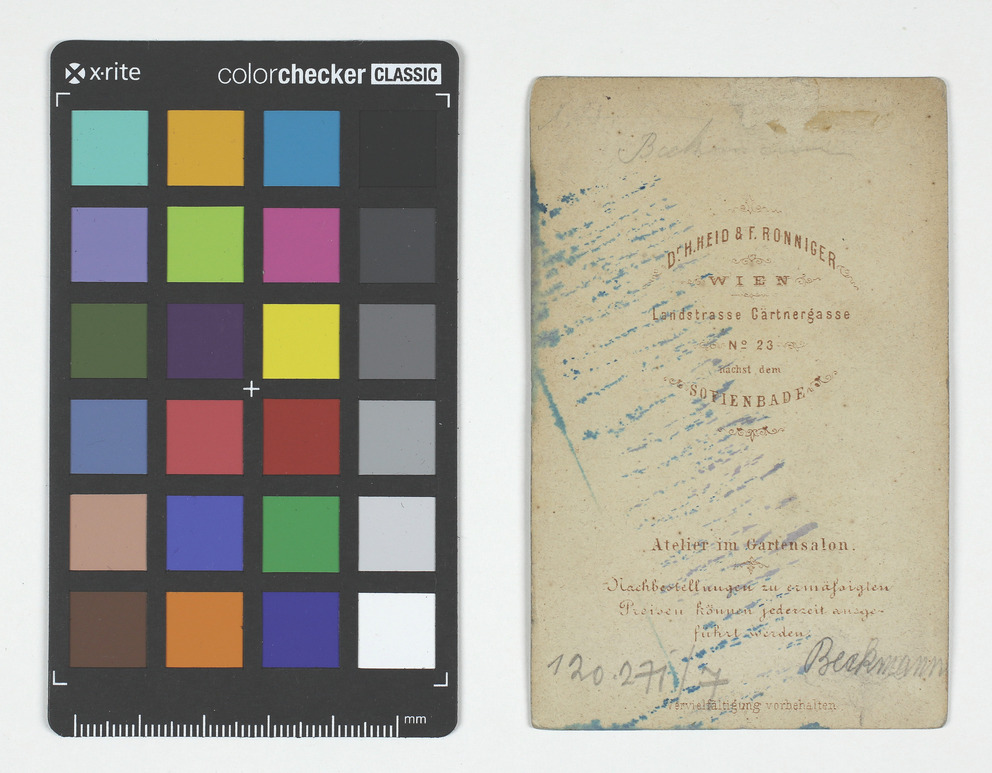 x·rite
colorchecker CLASSIC
mm
Beckmann
Dr. H. HEID & F. RONNIGER
WIEN
Landstrasse Gärtnergasse
No 23
nächst dem
SOFIENBADE
Atelier im Gartensalon.
Nachbestellungen zu ermäfsigten
Preisen können jederzeit ausge-
führt werden.
120.271/7
Beckmann
Vervielfältigung vorbehalten.